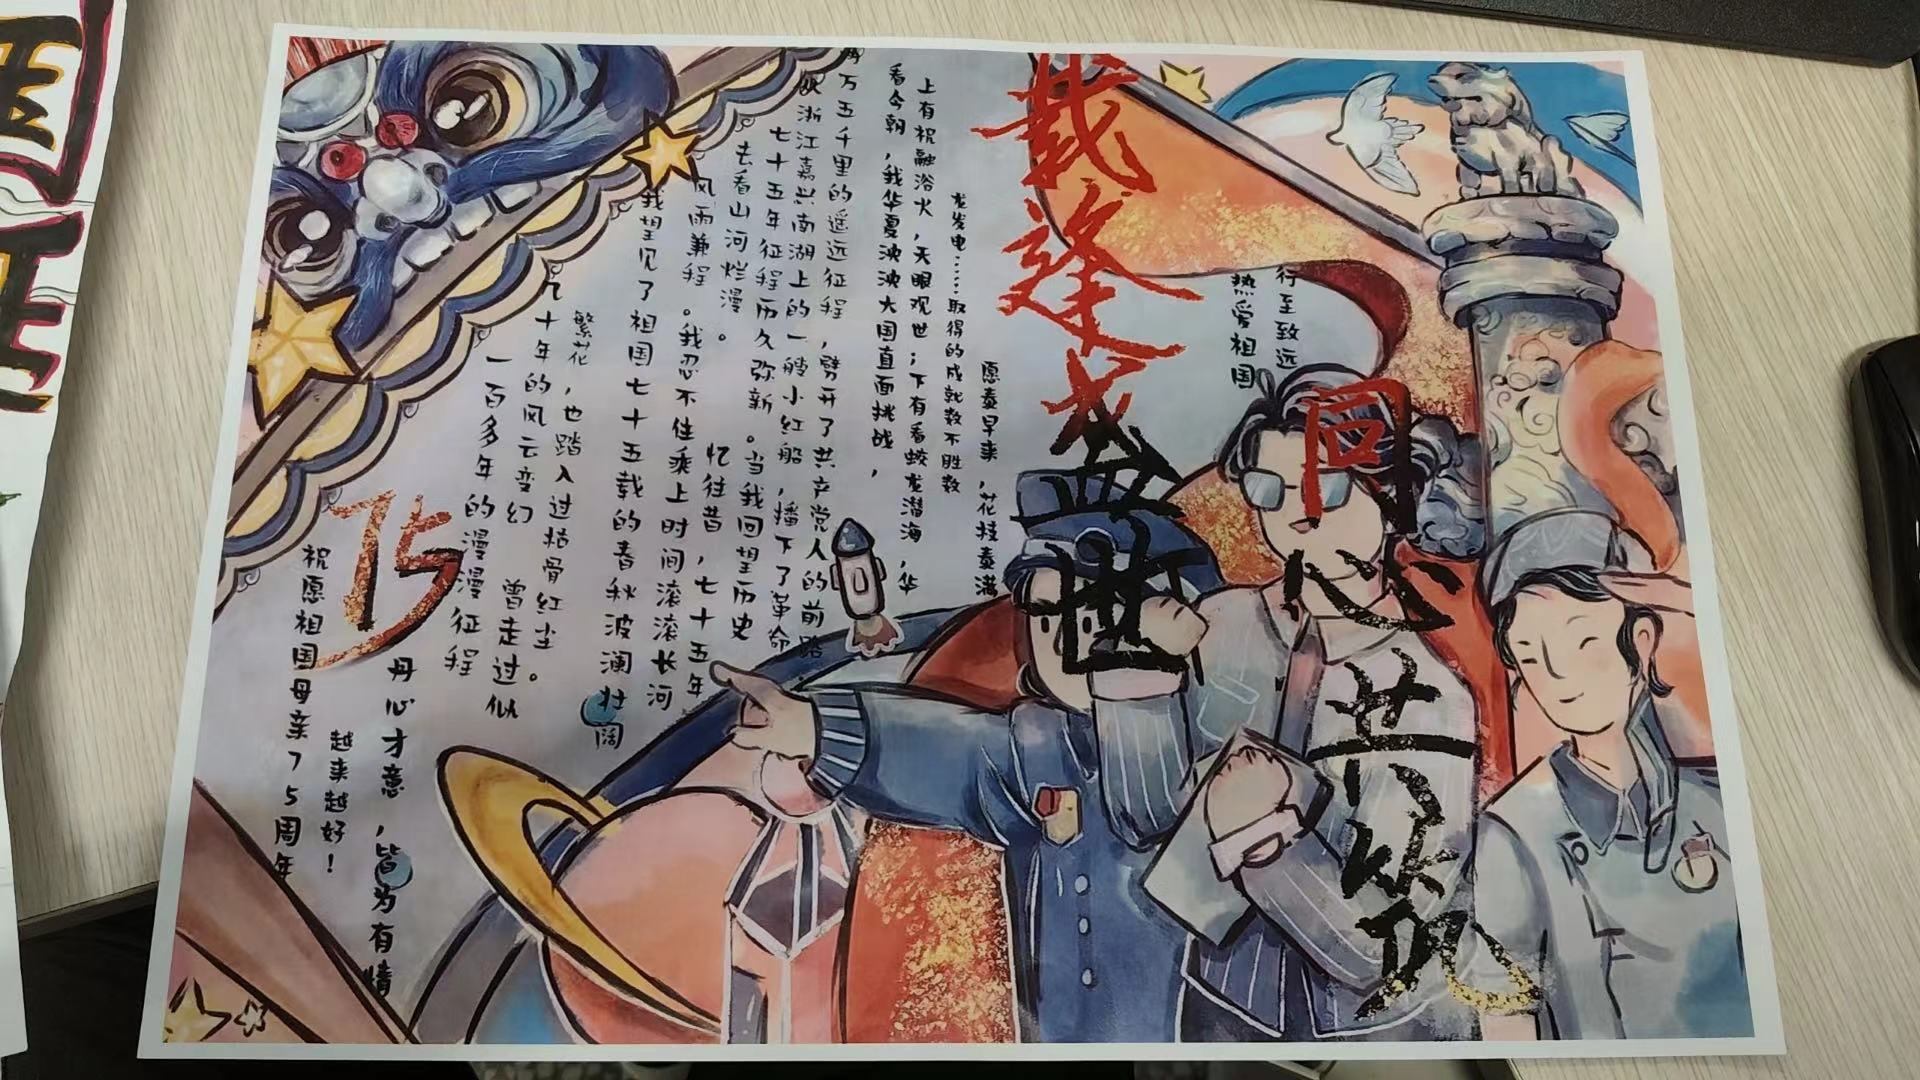 行至致远
热爱祖国
载逢盛世
同心共筑
愿春早来,花枝春满
龙发电……取得的成就数不胜数
上有祝融浴火,天眼观世;下有看蛟龙潜海,华
看今朝,我华夏泱泱大国直面挑战,
万五千里的遥远征程,劈开了共产党人的前路
从浙江嘉兴南湖上的一艘小红船,播下了革命
七十五年征程历久弥新。当我回望历史
去看山河烂漫。
忆往昔,七十五年
风雨兼程。我忍不住乘上时间滚滚长河
我望见了祖国七十五载的春秋波澜壮阔
繁花,也踏入过枯骨红尘。
几十年的风云变幻
曾走过似
一百多年的漫漫征程
75
丹心才意,皆为有情
越来越好!
祝愿祖国母亲75周年